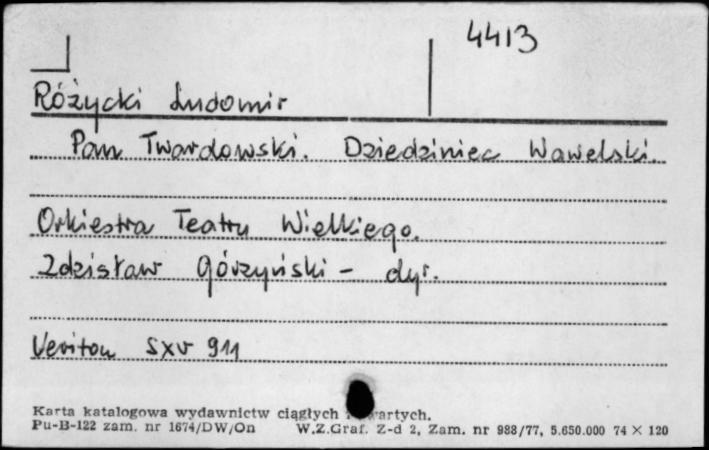 4413
Różycki Ludomir
Pan Twardowski. Dziedziniec Wawelski.
Orkiestra Teatru Wielkiego.
Zdzisław Górzyński – dyr.
Veriton SXV 911
Karta katalogowa wydawnictw ciągłych i zwartych.
Pu-B-122 zam. nr 1674/DW/On W.Z.Graf. Z-d 2, Zam. nr 988/77, 5.650.000 74 × 120